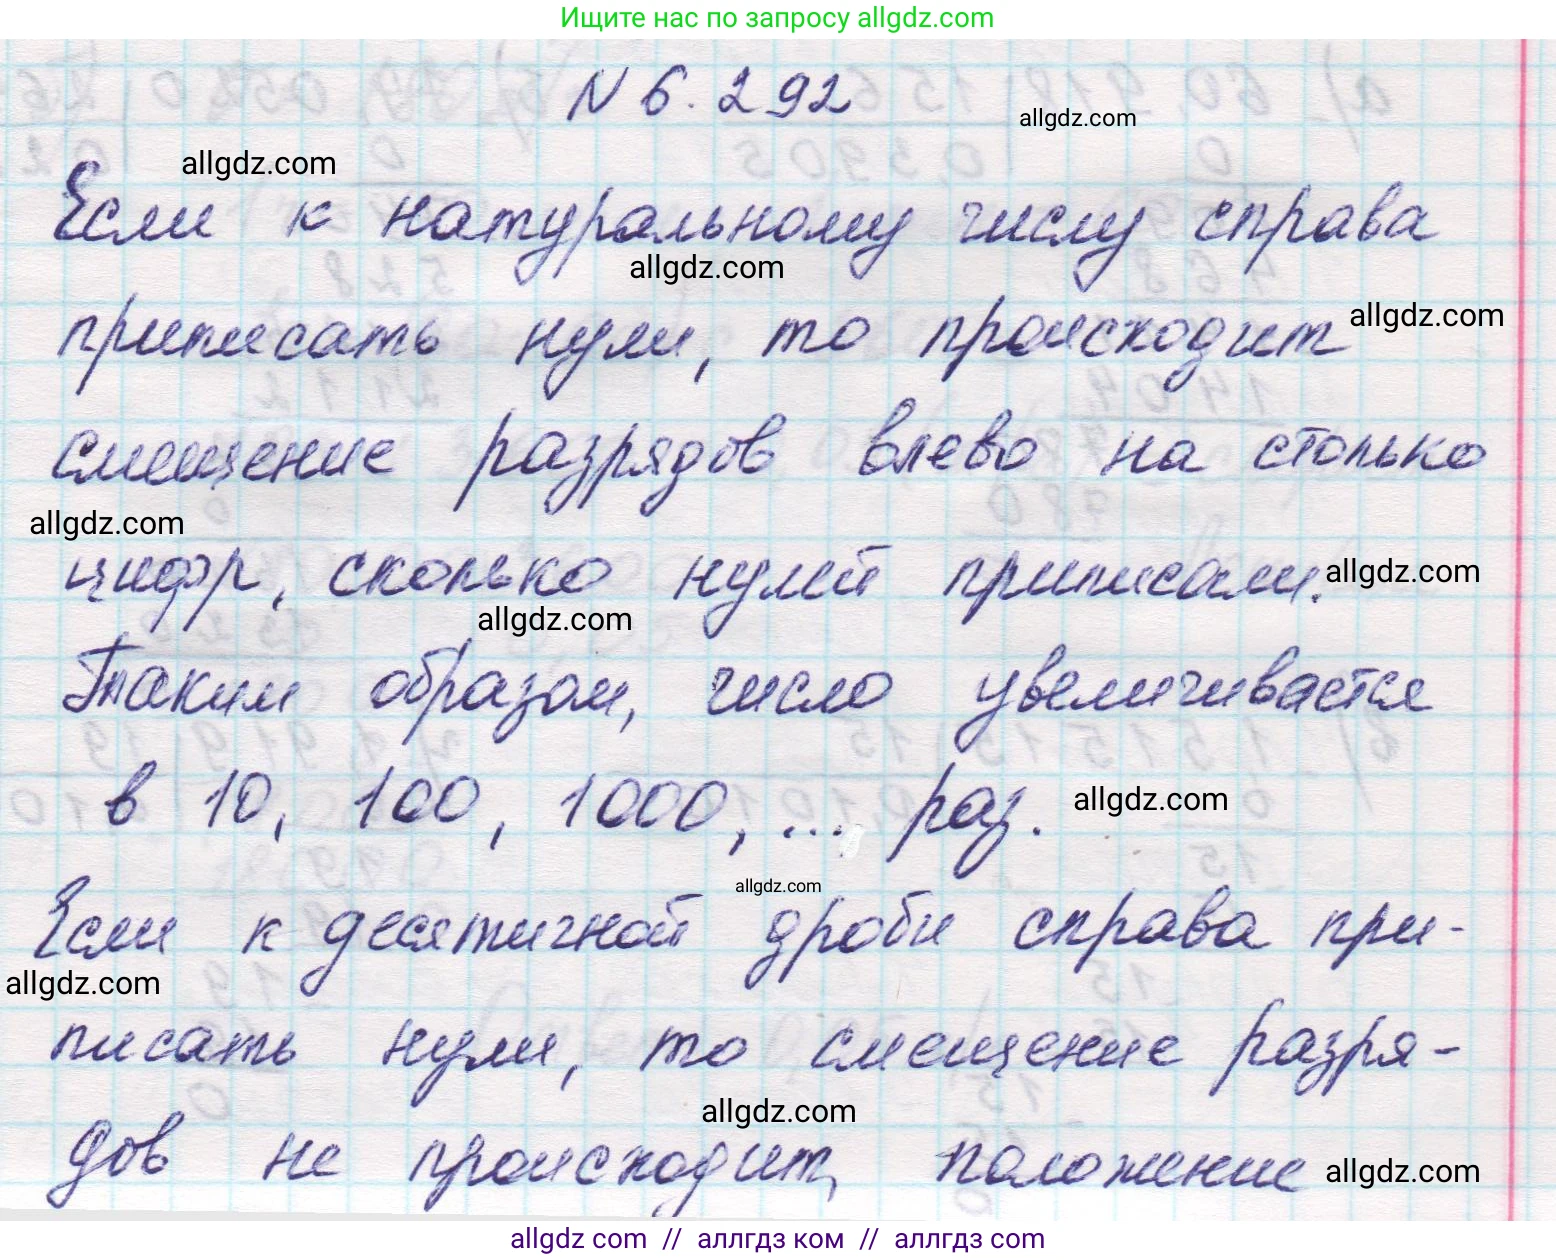 Ищите нас по запросу allgdz.com
N 6. 292
allgdz.com
allgdz.com
Если к натуральному числу справа
allgdz.com
приписать нули, то происходит
allgdz.com
смещение разрядов влево на столько
allgdz.com
цифр, сколько нулей приписали.
allgdz.com
allgdz.com
Таким образом, число увеличивается
в 10, 100, 1000, ... раз.
allgdz.com
allgdz.com
Если к десятичной дроби справа при-
allgdz.com
писать нули, то смещение разря-
allgdz.com
дов не происходит, положение
allgdz.com
allgdz.com // аллгдз ком // аллгдз.com